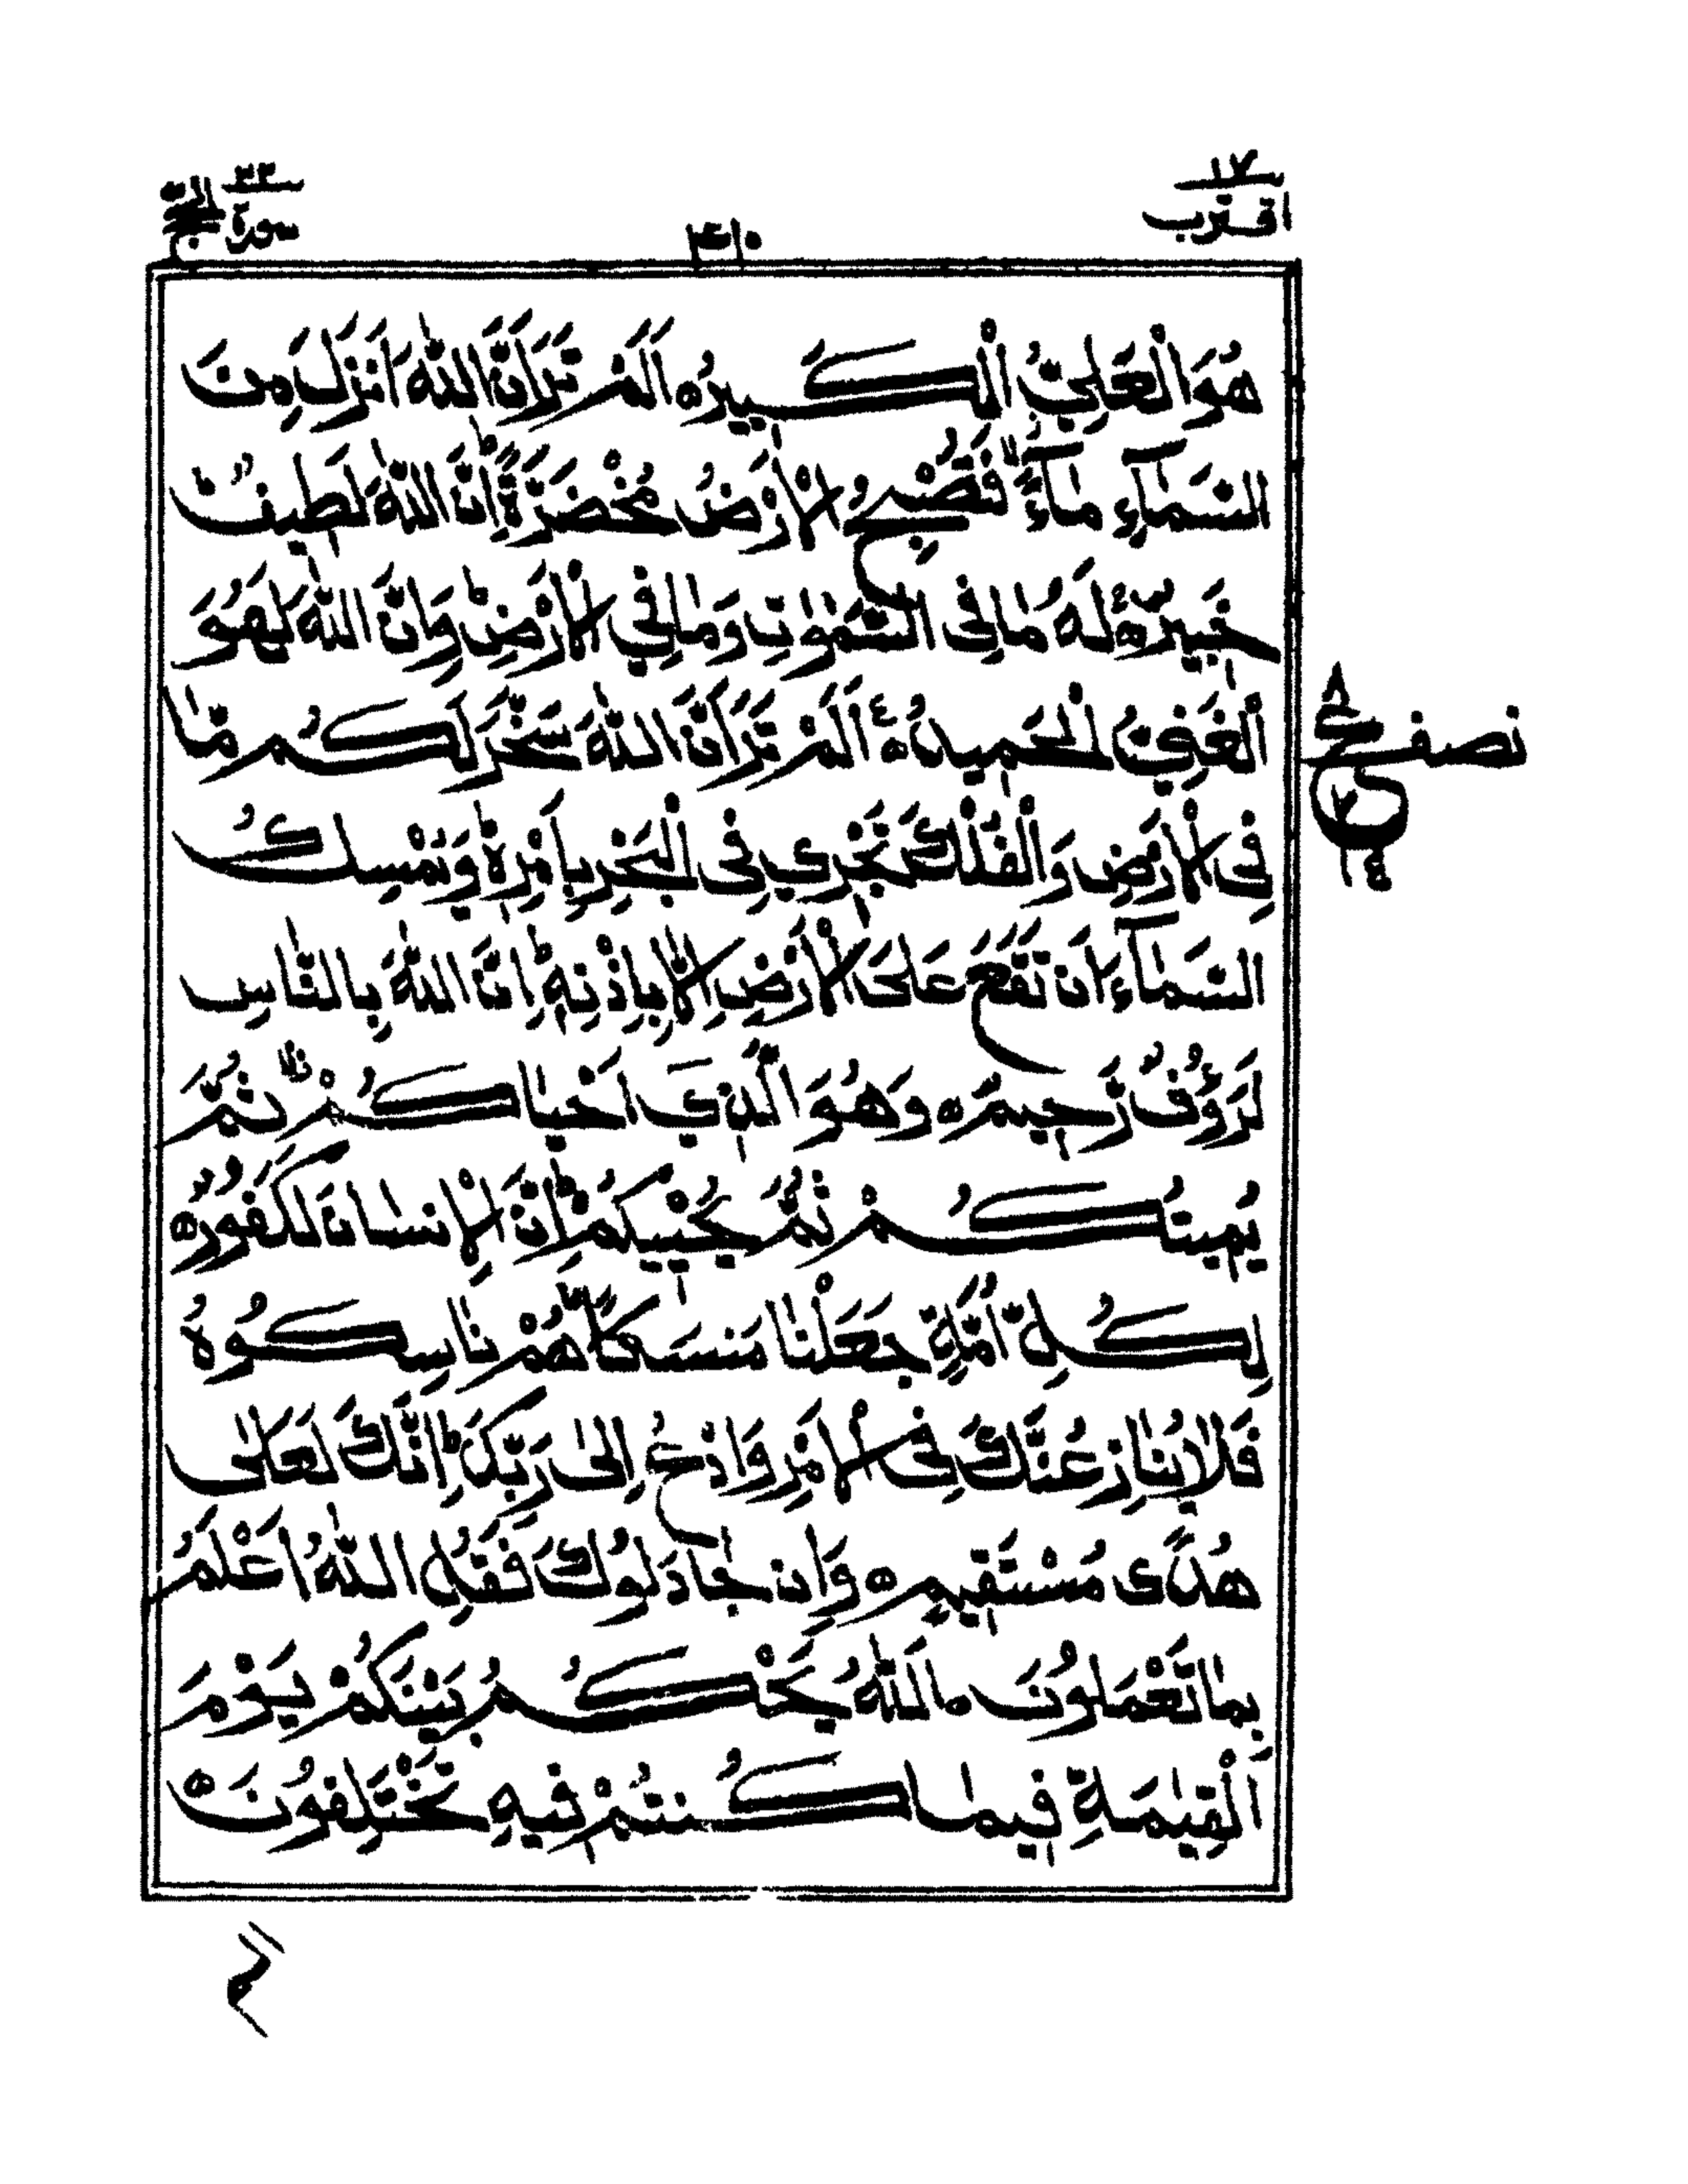 ١٧
اقترب
٤١٠
٢٢
سورة الحج
هُوَ الْعَلِيُّ الْكَبِيرُ ه اَلَمْ تَرَ اَنَّ اللّٰهَ اَنزَلَ مِنَ
السَّمَآءِ مَآءً فَتُصْبِحُ الْاَرْضُ مُخْضَرَّةً ط اِنَّ اللّٰهَ لَطِيفٌ
خَبِيرٌ ه لَهُ مَا فِى السَّمٰوٰتِ وَمَا فِي الْاَرْضِ ط وَاِنَّ اللّٰهَ لَهُوَ
الْغَنِيُّ الْحَمِيدُ ه ع اَلَمْ تَرَ اَنَّ اللّٰهَ سَخَّرَ لَكُم مَّا
فِى الْاَرْضِ وَالْفُلْكَ تَجْرِي فِى الْبَحْرِ بِاَمْرِهٖ ط وَيُمْسِكُ
السَّمَآءَ اَن تَقَعَ عَلَى الْاَرْضِ اِلَّا بِاِذْنِهٖ ط اِنَّ اللّٰهَ بِالنَّاسِ
لَرَءُوفٌ رَّحِيمٌ ه وَهُوَ الَّذِي اَحْيَاكُمْ ثُمَّ
يُمِيتُكُمْ ثُمَّ يُحْيِيكُمْ ط اِنَّ الْاِنسَانَ لَكَفُورٌ ه
لِكُلِّ اُمَّةٍ جَعَلْنَا مَنسَكًا هُمْ نَاسِكُوهُ
فَلَا يُنَازِعُنَّكَ فِى الْاَمْرِ وَادْعُ اِلٰى رَبِّكَ ط اِنَّكَ لَعَلٰى
هُدًى مُسْتَقِيمٍ ه وَاِن جَادَلُوكَ فَقُلِ اللّٰهُ اَعْلَمُ
بِمَا تَعْمَلُونَ ه اَللّٰهُ يَحْكُمُ بَيْنَكُمْ يَوْمَ
الْقِيٰمَةِ فِيمَا كُنتُمْ فِيهِ تَخْتَلِفُونَ ه
نصف
ع
٧
١٤